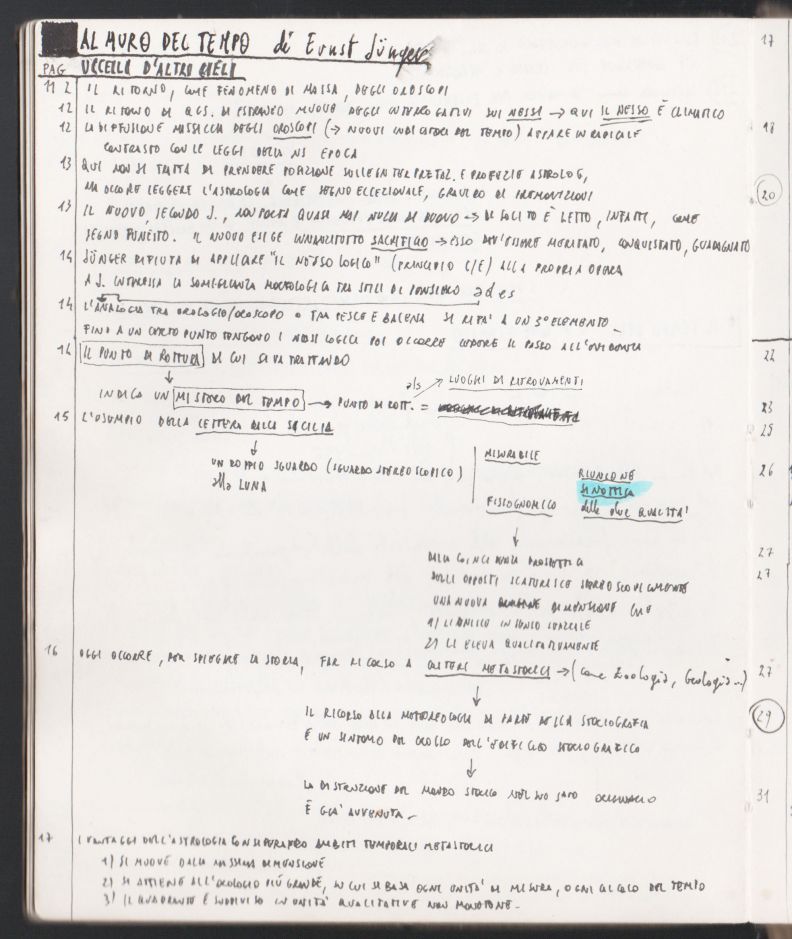 AL MURO DEL TEMPO di Ernst Jünger
PAG UCCELLI D'ALTRI CIELI
11 2 IL RITORNO, COME FENOMENO DI MASSA, DEGLI OROSCOPI
12 IL RITORNO DI QCS. DI ESTRANEO MUOVE DEGLI INTERROGATIVI SUI NESSI → QUI IL NESSO È CLIMATICO
12 LA DIFFUSIONE MASSICCIA DEGLI OROSCOPI (→ NUOVI INDICATORI DEL TEMPO) APPARE IN RADICALE
CONTRASTO CON LE LEGGI DELLA NS EPOCA
13 QUI NON SI TRATTA DI PRENDERE POSIZIONE SULLE INTERPRETAZ. E PROFEZIE ASTROLOG,
MA OCCORRE LEGGERE L'ASTROLOGIA COME SEGNO ECCEZIONALE, GRAVIDO DI PREMONIZIONI
13 IL NUOVO, SECONDO J., NON PORTA QUASI MAI NULLA DI BUONO → DI SOLITO È LETTO, INFATTI, COME
SEGNO FUNESTO. IL NUOVO ESIGE INNANZITUTTO SACRIFICIO → ESSO DEV'ESSERE MERITATO, CONQUISTATO, GUADAGNATO
14 JÜNGER RIFIUTA DI APPLICARE "IL NESSO LOGICO" (PRINCIPIO C/E) ALLA PROPRIA OPERA
A J. INTERESSA LA SOMIGLIANZA MORFOLOGICA TRA STILI DI PENSIERO ad es
14 L'ANALOGIA TRA OROLOGIO/OROSCOPO O TRA PESCE E BALENA SI RIFÀ A UN 3° ELEMENTO_
FINO A UN CERTO PUNTO TENGONO I NESSI LOGICI POI OCCORRE CEDERE IL PASSO ALL'EVIDENZA
14 IL PUNTO DI ROTTURA DI CUI SI VA TRATTANDO
INDICA UN MISTERO DEL TEMPO → PUNTO DI ROTT. =
als LUOGHI DI RITROVAMENTI
15 L'ESEMPIO DELLA LETTERA DALLA SICILIA
UN DOPPIO SGUARDO (SGUARDO STEREOSCOPICO)
alla LUNA
MISURABILE
FISIOGNOMICO
RIUNIONE
SINOTTICA
delle due QUALITA'
DALLA COINCIDENZA PROSPETTICA
DEGLI OPPOSTI SCATURISCE STEREOSCOPICAMENTE
UNA NUOVA DIMENSIONE CHE
1/ LI UNISCE IN SENSO SPAZIALE
2/ LI ELEVA QUALITATIVAMENTE
16 OGGI OCCORRE, PER SPIEGARE LA STORIA, FAR RICORSO A CRITERI METASTORICI → (come Zoologia, Geologia...)
IL RICORSO ALLA METEOROLOGIA DA PARTE DELLA STORIOGRAFIA
È UN SINTOMO DEL CROLLO DELL'EDIFICIO STORIOGRAFICO
LA DISTRUZIONE DEL MONDO STORICO NEL SUO SENSO ORIGINARIO
È GIA' AVVENUTA_
17 I VANTAGGI DELL'ASTROLOGIA CONSIDERANDO AMBITI TEMPORALI METASTORICI
1) SI MUOVE DALLA MASSIMA DIMENSIONE
2) SI ATTIENE ALL'OROLOGIO PIÙ GRANDE, SU CUI SI BASA OGNI UNITÀ DI MISURA, OGNI CALCOLO DEL TEMPO
3) IL QUADRANTE È SUDDIVISO IN UNITÀ QUALITATIVE NON MONOTONE_
17
18
20
22
23
25
26
27
27
27
29
31